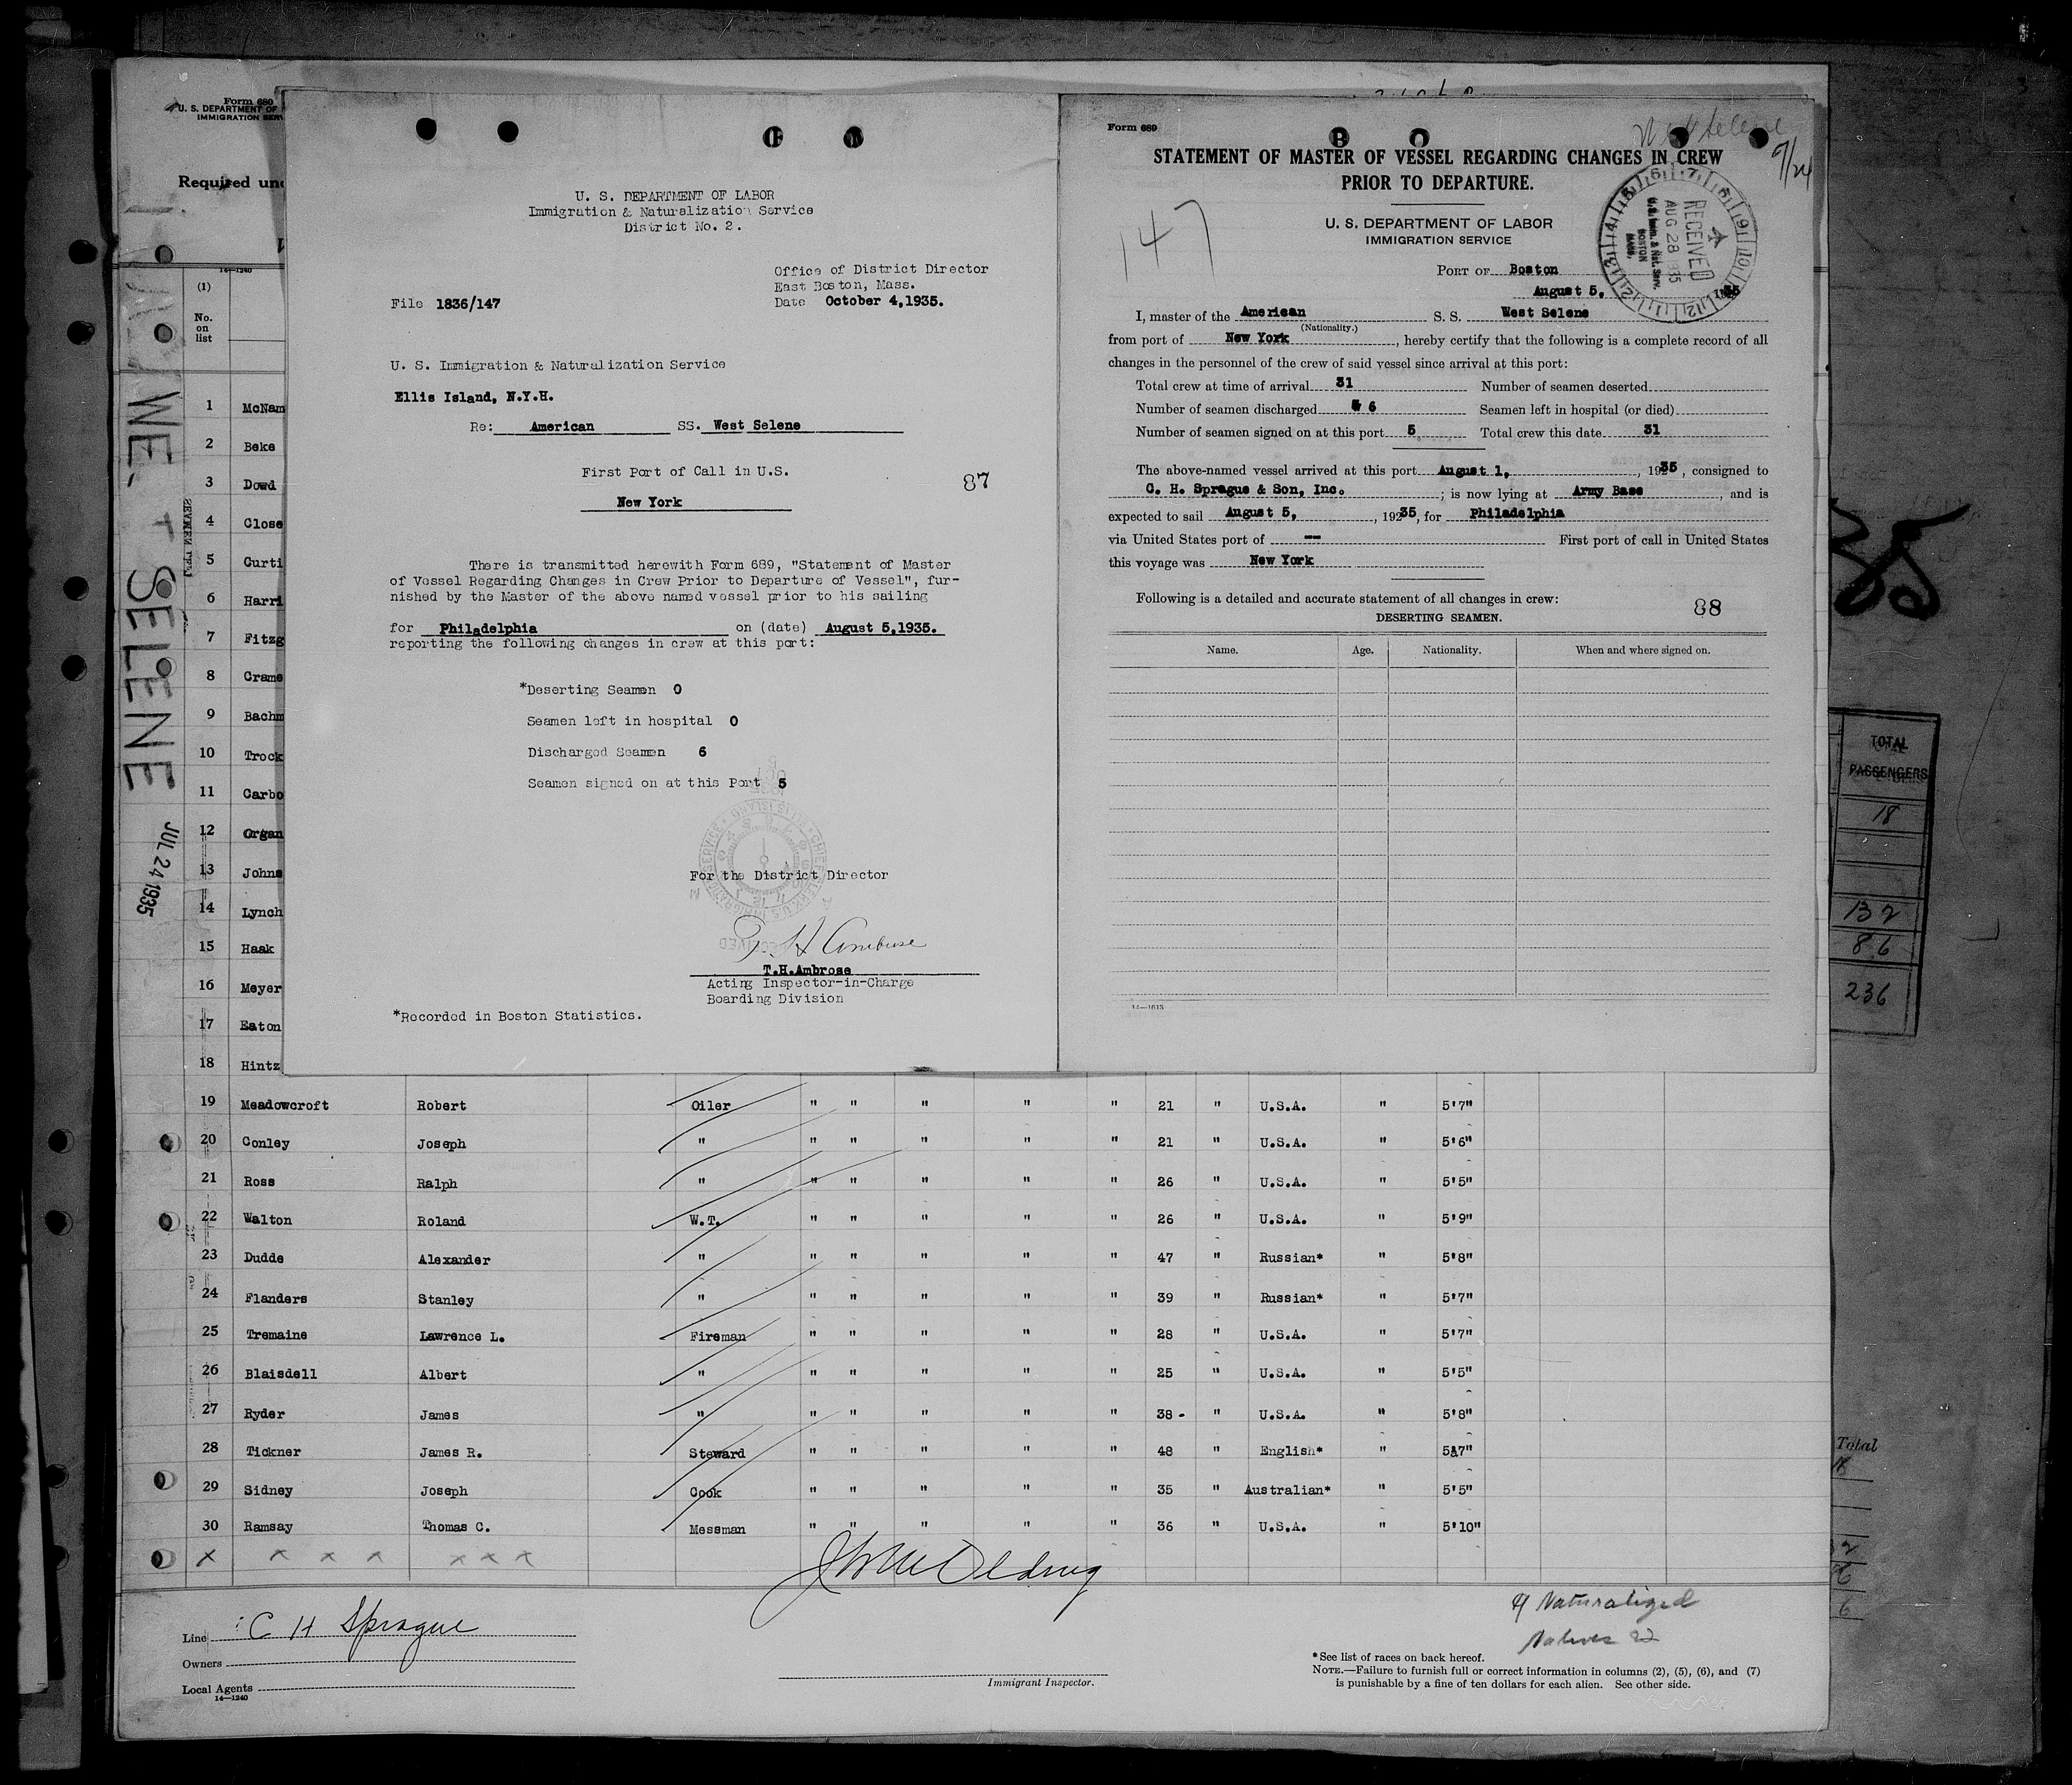 Form 680
U. S. DEPARTMENT OF
IMMIGRATION SERV
Required und
14—1240
(1)
No.
on
list
WEST SELENE
JUL 24 1935
1 McNam
2 Beke
3 Dowd
4 Close
5 Curti
6 Harri
7 Fitzg
8 Crame
9 Bachm
10 Trock
11 Carbo
12 Organ
13 Johns
14 Lynch
15 Haak
16 Meyer
17 Eaton
18 Hintz
U. S. DEPARTMENT OF LABOR
Immigration & Naturalization Service
District No. 2.
Office of District Director
East Boston, Mass.
File 1836/147
Date October 4,1935.
U. S. Immigration & Naturalization Service
Ellis Island, N.Y.H.
Re: American SS. West Selene
First Port of Call in U.S.
87
New York
There is transmitted herewith Form 689, "Statement of Master
of Vessel Regarding Changes in Crew Prior to Departure of Vessel", fur-
nished by the Master of the above named vessel prior to his sailing
for Philadelphia on (date) August 5,1935.
reporting the following changes in crew at this port:
*Deserting Seamen 0
Seamen left in hospital 0
Discharged Seamen 6
Seamen signed on at this Port 5
For the District Director
T H Ambrose
T.H.Ambrose
Acting Inspector-in-Charge
Boarding Division
*Recorded in Boston Statistics.
Form 689
W. Selene
9/24
STATEMENT OF MASTER OF VESSEL REGARDING CHANGES IN CREW
PRIOR TO DEPARTURE.
147
U. S. DEPARTMENT OF LABOR
IMMIGRATION SERVICE
RECEIVED
AUG 28 1935
U.S. Imm. & Nat. Serv.
BOSTON
MASS.
PORT OF Boston
August 5, 1935
I, master of the American S. S. West Selene
(Nationality.)
from port of New York, hereby certify that the following is a complete record of all
changes in the personnel of the crew of said vessel since arrival at this port:
Total crew at time of arrival 31 Number of seamen deserted
Number of seamen discharged 6 Seamen left in hospital (or died)
Number of seamen signed on at this port 5 Total crew this date 31
The above-named vessel arrived at this port August 1, 1935, consigned to
C. H. Sprague & Son, Inc. ; is now lying at Army Base, and is
expected to sail August 5, 19235, for Philadelphia
via United States port of -- First port of call in United States
this voyage was New York
Following is a detailed and accurate statement of all changes in crew:
88
DESERTING SEAMEN.
Name. Age. Nationality. When and where signed on.
14—1613
TOTAL
PASSENGERS
18
132
86
236
19 Meadowcroft Robert Oiler " " " " " 21 " U.S.A. " 5'7"
20 Conley Joseph " " " " " " 21 " U.S.A. " 5'6"
21 Ross Ralph " " " " " " 26 " U.S.A. " 5'5"
22 Walton Roland W.T. " " " " " 26 " U.S.A. " 5'9"
23 Dudde Alexander " " " " " " 47 " Russian* " 5'8"
24 Flanders Stanley " " " " " " 39 " Russian* " 5'7"
25 Tremaine Lawrence L. Fireman " " " " " 28 " U.S.A. " 5'7"
26 Blaisdell Albert " " " " " " 25 " U.S.A. " 5'5"
27 Ryder James " " " " " " 38 - " U.S.A. " 5'8"
28 Tickner James R. Steward " " " " " 48 " English* " 5'7"
29 Sidney Joseph Cook " " " " " 35 " Australian* " 5'5"
30 Ramsay Thomas C. Messman " " " " " 36 " U.S.A. " 5'10"
x x x x x x x
Total
Line C H Sprague
Owners
Local Agents
14—1240
Immigrant Inspector.
Naturalized
Natives 22
*See list of races on back hereof.
NOTE.—Failure to furnish full or correct information in columns (2), (5), (6), and (7)
is punishable by a fine of ten dollars for each alien. See other side.